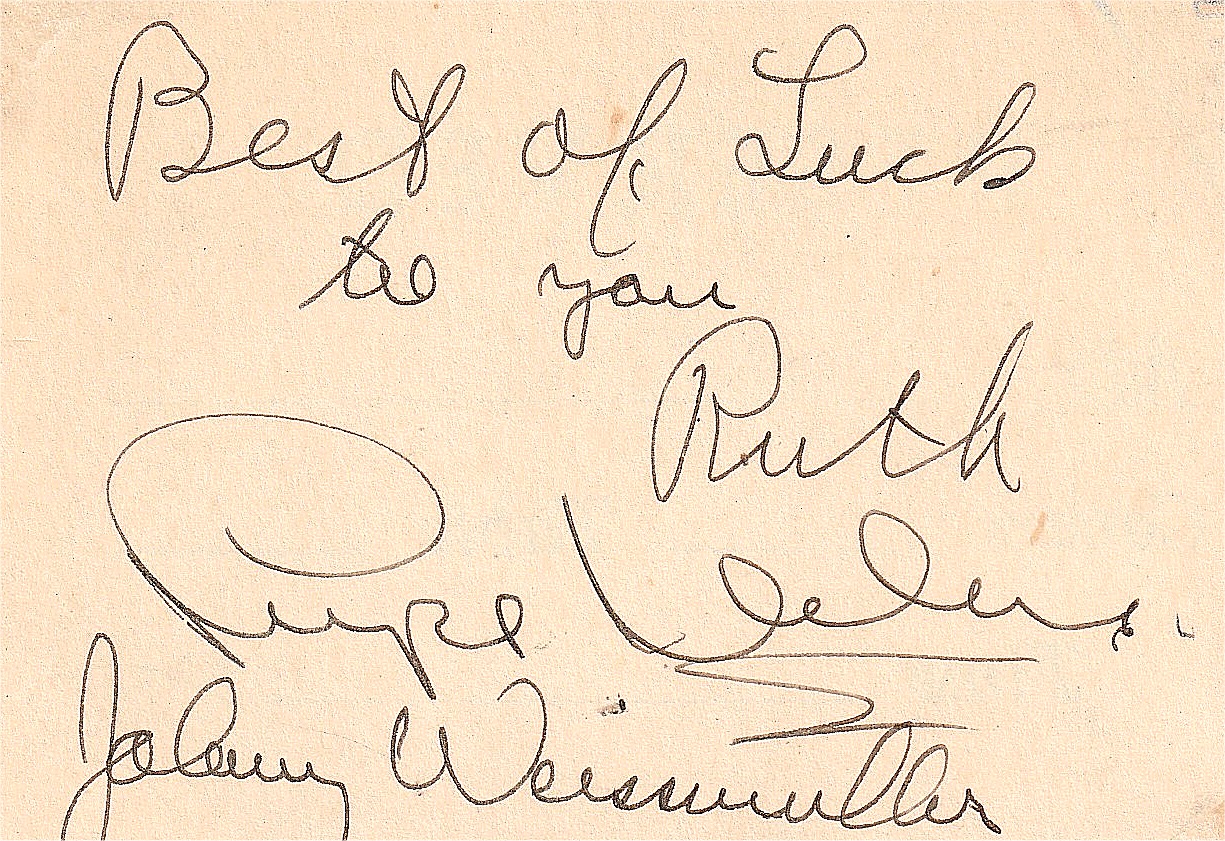 Best of Luck
to you
Ruth
Lupe Velez
Johnny Weissmuller